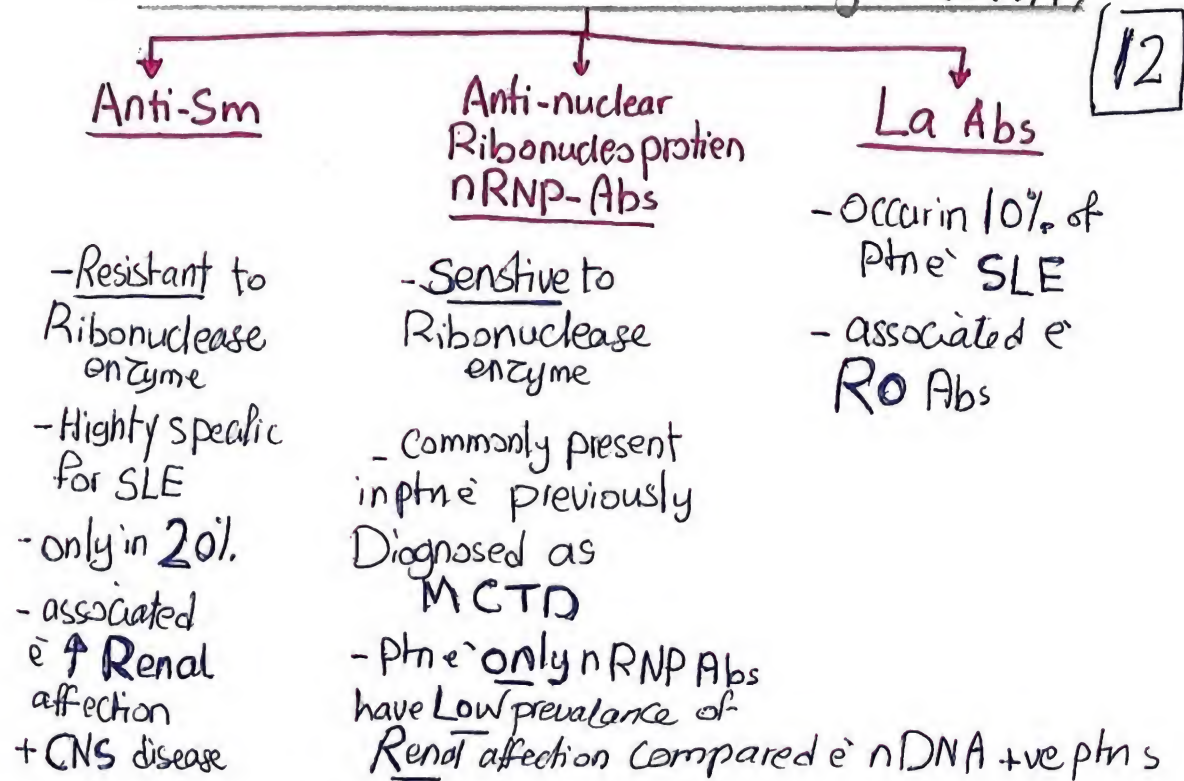 12
Anti-Sm
-Resistant to
Ribonuclease
enzyme
-Highty specific
for SLE
-only in 20%.
- associated
è ↑ Renal
affection
+ CNS disease
Anti-nuclear
Ribonucleoprotien
nRNP-Abs
-Senstive to
Ribonuclease
enzyme
- Commonly present
in ptn è previously
Diagnosed as
MCTD
- Ptn è only nRNP Abs
have Low prevalance of
Renal affection compared è nDNA +ve ptn s
La Abs
- Occur in 10%. of
Ptn è SLE
- associated è
RO Abs